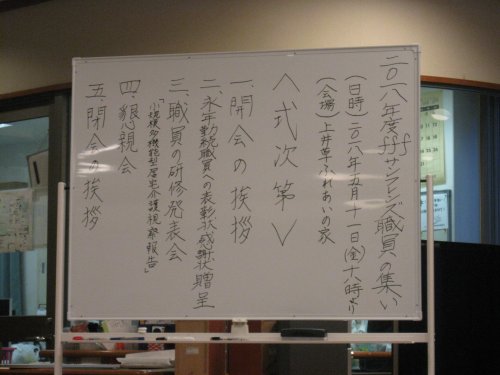 二〇一八年度fffサンフレンズ職員の集い
(日時)二〇一八年五月十一日(金)十八時より
(会場)上井草ふれあいの家
〈式次第〉
一、開会の挨拶
二、永年勤続職員への表彰状感謝状贈呈
三、職員の研修発表会
「小規模多機能型居宅介護視察報告」
四、懇親会
五、閉会の挨拶